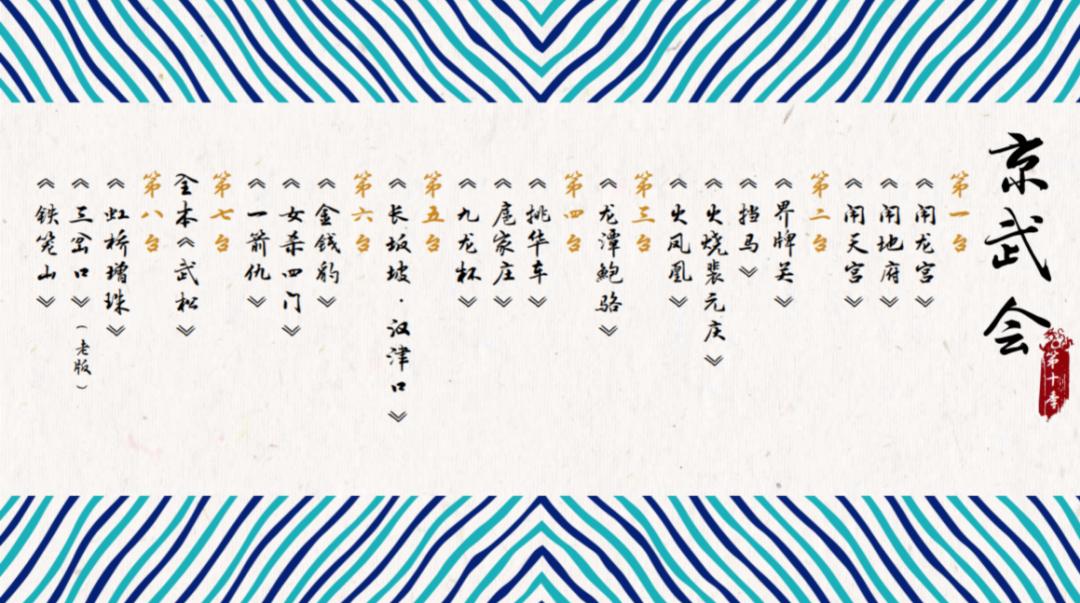 京武会
第十季
第一台
《闹龙宫》
《闹地府》
《闹天宫》
第二台
《界牌关》
《挡马》
《火烧裴元庆》
《火凤凰》
第三台
《龙潭鲍骆》
第四台
《挑华车》
《扈家庄》
《九龙杯》
第五台
《长坂坡·汉津口》
第六台
《金钱豹》
《女杀四门》
《一箭仇》
第七台
全本《武松》
第八台
《虹桥赠珠》
《三岔口》(老版)
《铁笼山》